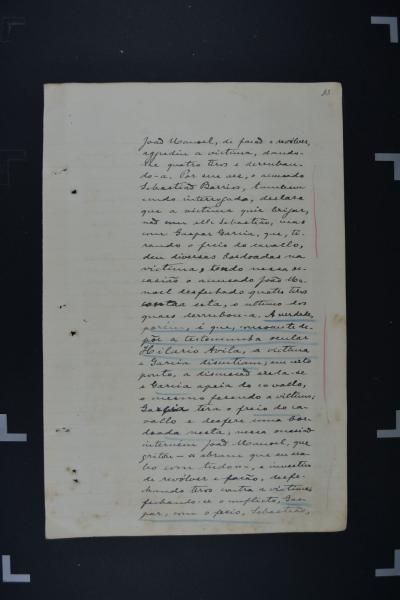 João Manoel, de facão e revólver,
aggrediu a victima, dando-
lhe quatro tiros e derruban-
do-a. Por sua vez, o accusado
Sebastião Barrios, tambem
sendo interrogado, declara
que a victima quiz brigar,
não com elle Sebastião, mas
com Gaspar Garcia, que, ti-
rando o freio do cavallo,
deu diversas bordoadas na
victima, tendo nessa oc-
casião o accusado João Ma-
noel desfechado quatro tiros
contra esta, o ultimo dos
quaes derrubou-a. A verdade,
porém, é que, consoante de-
põe a testemunha ocular
Hilario Avila, a victima
e Garcia discutiam, em certo
ponto, a discussão
e Garcia apeia do cavallo,
o mesmo fazendo a victima;
Gaspar tira o freio do ca-
vallo e desfere uma bor-
doada nesta; nessa occasião
intervem João Manoel, que
gritou — abram que eu aca-
bo com tudo —, e investiu
de revólver e facão, desfe-
chando tiros contra a victima
fechando-se o conflicto, Gas-
par, com o freio, Sebastião,